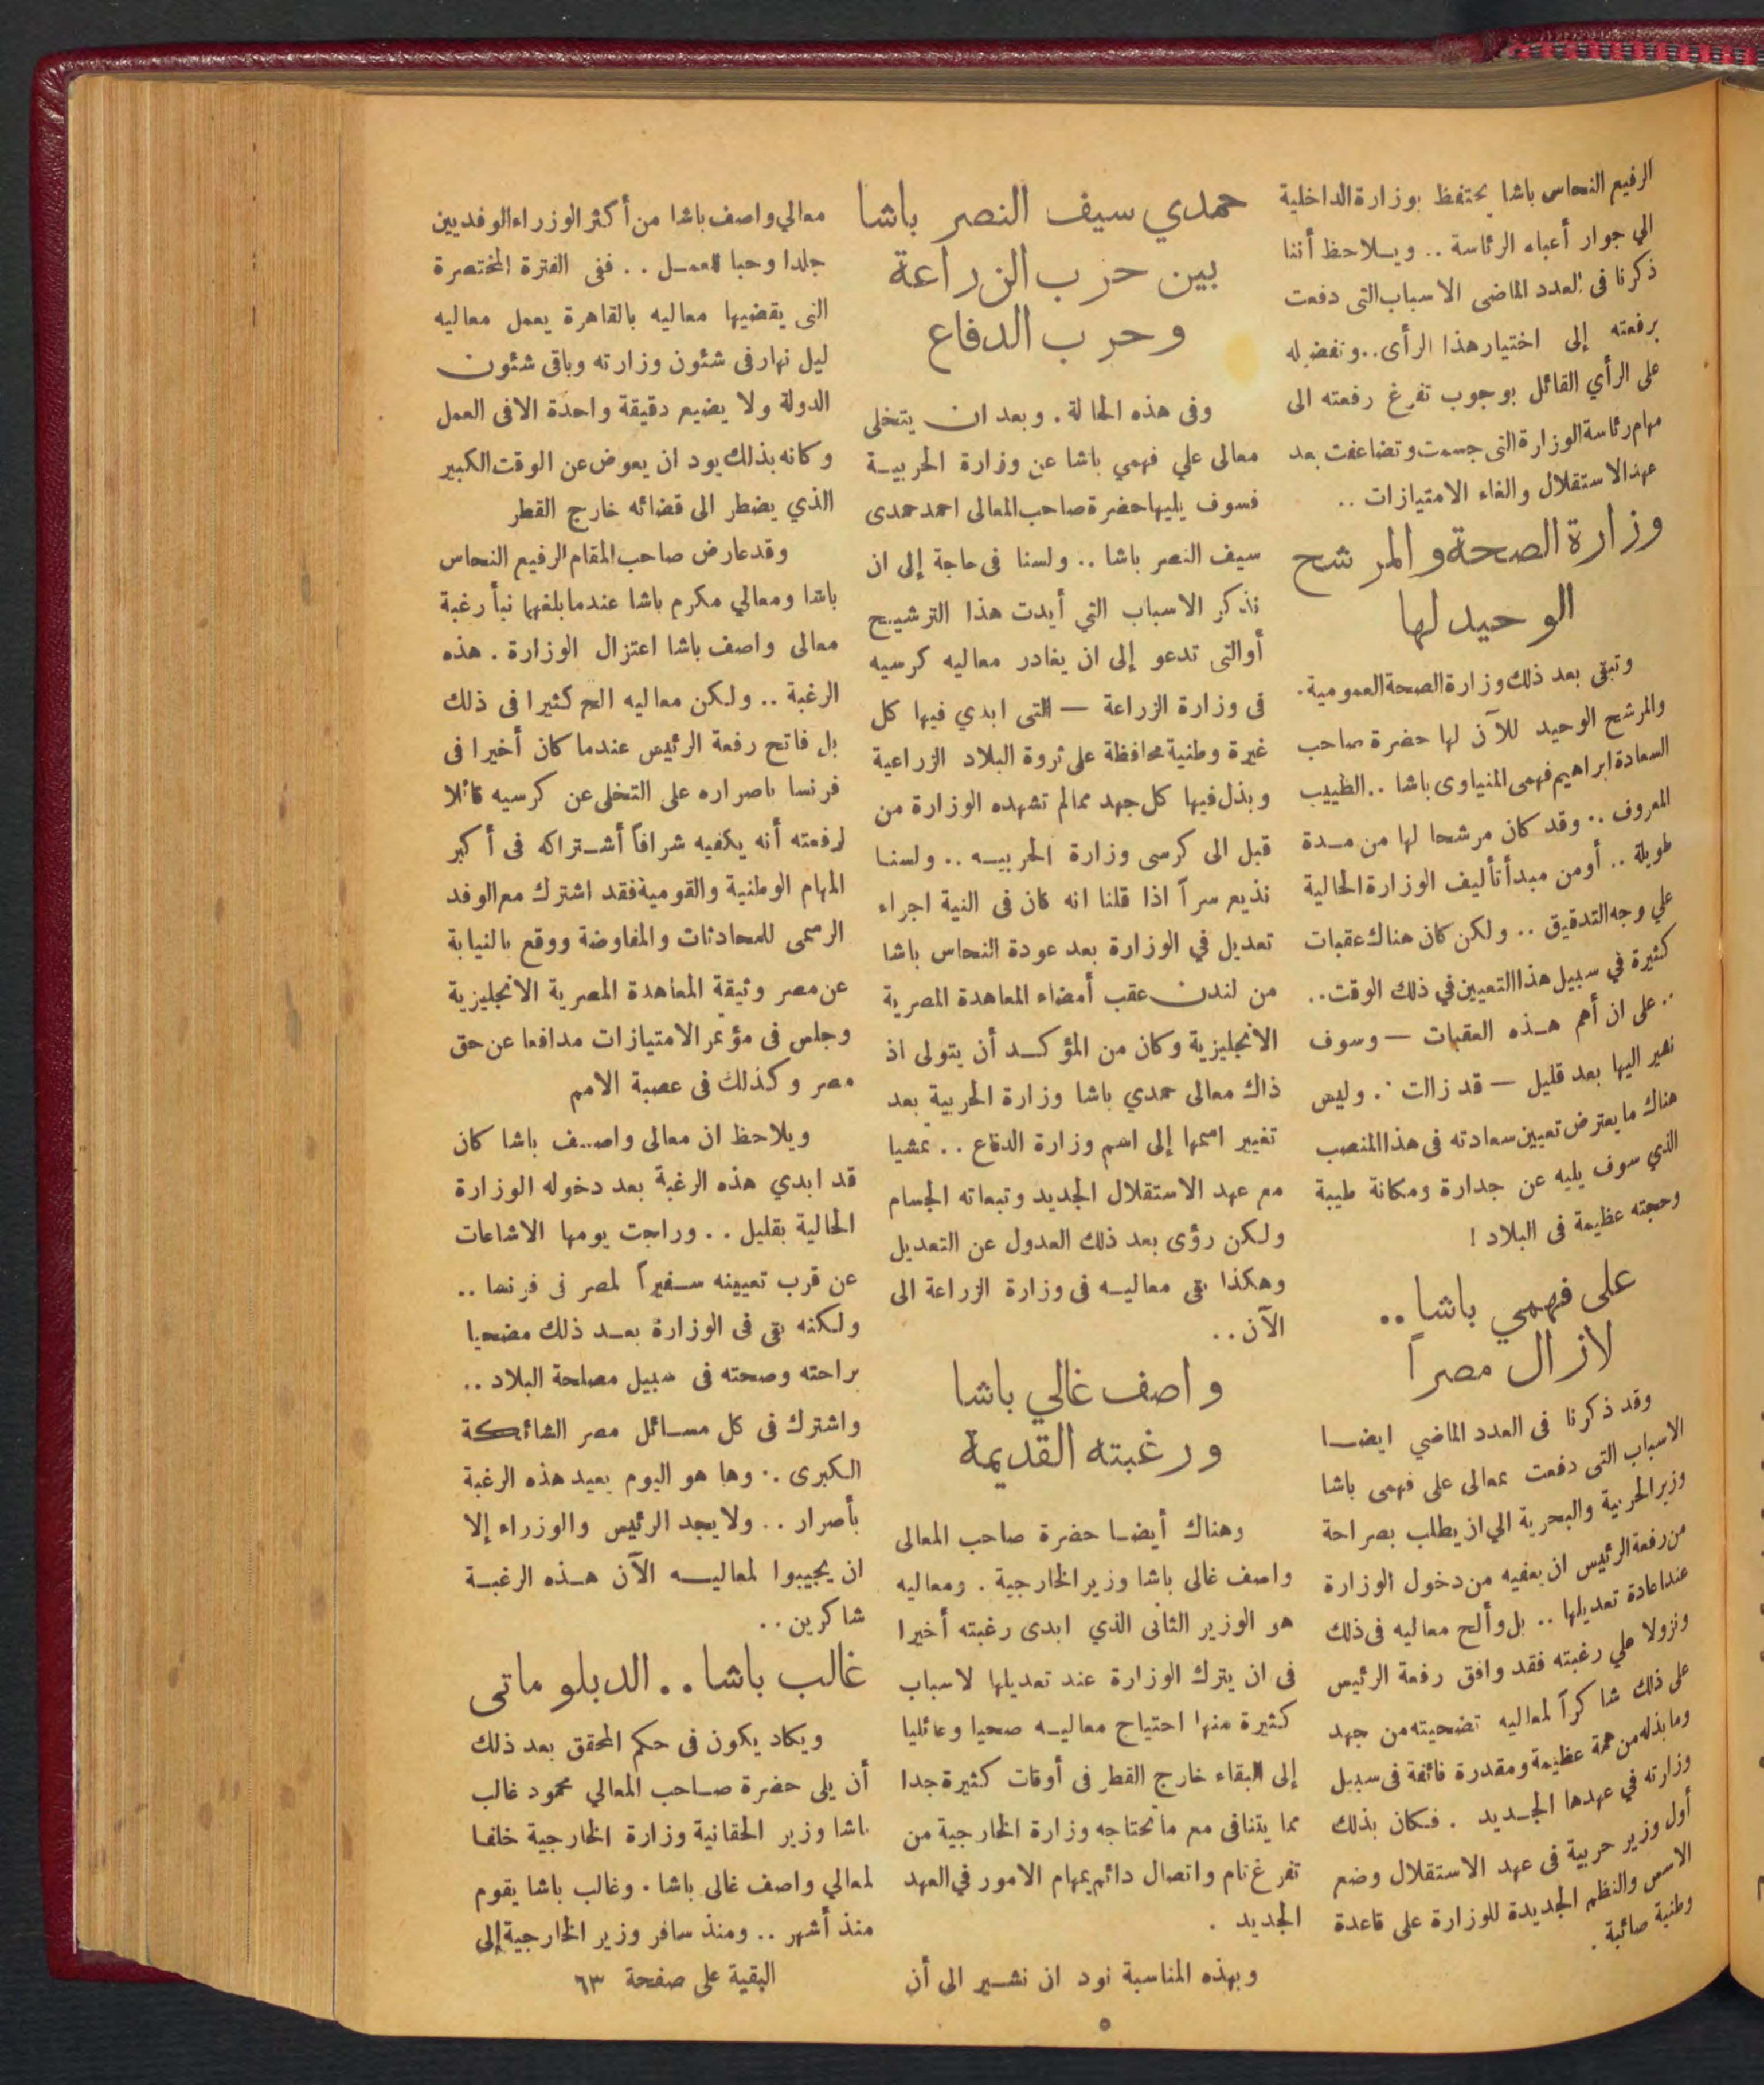 الرفيع النحاس باشا يحتفظ بوزارة الداخلية
الي جوار أعباء الرئاسة .. ويـلاحظ أننا
ذكرنا فى العدد الماضى الاسباب التى دفعت
برفعته إلى اختيار هذا الرأى .. وتفضيله
على الرأي القائل بوجوب تفرغ رفعته الى
مهام رئاسة الوزارة التى جسمت وتضاعفت بعد
عهد الاستقلال والغاء الامتيازات ..
وزارة الصحة والمرشح
الوحيد لها
وتبقى بعد ذلك وزارة الصحة العمومية .
والمرشح الوحيد للآن لها حضرة صاحب
السعادة ابراهيم فهمى المنياوى باشا .. الطبيب
المعروف .. وقد كان مرشحا لها من مـدة
طويلة .. أومن مبدأ تأليف الوزارة الحالية
علي وجه التدقيق .. ولكن كان هناك عقبات
كثيرة في سبيل هذا التعيين في ذلك الوقت ..
.. على ان أهم هـذه العقبات — وسوف
نشير اليها بعد قليل — قد زالت . وليس
هناك ما يعترض تعيين سعادته فى هذا المنصب
الذي سوف يليه عن جدارة ومكانة طيبة
وحجته عظيمة فى البلاد !
على فهمي باشا ..
لازال مصراً
وقد ذكرنا فى العدد الماضي ايضـا
الاسباب التى دفعت بمعالى على فهمى باشا
وزير الحربية والبحرية الي ان يطلب بصراحة
من رفعة الرئيس ان يعفيه من دخول الوزارة
عند اعادة تعديلها .. بل وألح معاليه فى ذلك
ونزولا علي رغبته فقد وافق رفعة الرئيس
على ذلك شاكراً لمعاليه تضحيته من جهد
وما بذله من همة عظيمة ومقدرة فائقة فى سبيل
وزارته في عهدها الجـديد . فـكان بذلك
أول وزير حربية فى عهد الاستقلال وضع
الاسس والنظم الجديدة للوزارة على قاعدة
وطنية صائبة .
حمدي سيف النصر باشا
بين حزب الزراعة
وحرب الدفاع
وفى هذه الحالة . وبعد ان يتخلى
معالى علي فهمي باشا عن وزارة الحربيـة
فسوف يليها حضرة صاحب المعالى احمد حمدى
سيف النصر باشا .. ولسنا فى حاجة إلى ان
نذكر الاسباب التي أيدت هذا الترشيـح
أوالتى تدعو إلى ان يغادر معاليه كرسيه
فى وزارة الزراعة — التى ابدي فيها كل
غيرة وطنية محافظة على ثروة البلاد الزراعية
وبذل فيها كل جهد ممالم تشهده الوزارة من
قبل الى كرسى وزارة الحربيـه .. ولسنـا
نذيع سراً اذا قلنا انه كان فى النية اجراء
تعديل في الوزارة بعد عودة النحاس باشا
من لندن عقب أمضاء المعاهدة المصرية
الانجليزية وكان من المؤكـد أن يتولى اذ
ذاك معالى حمدي باشا وزارة الحربية بعد
تغيير اسمها إلى اسم وزارة الدفاع .. تمشيا
مع عهد الاستقلال الجديد وتبعاته الجسام
ولكن رؤى بعد ذلك العدول عن التعديل
وهكذا بقى معاليـه فى وزارة الزراعة الى
الآن ..
واصف غالي باشا
ورغبته القديمة
وهناك أيضـا حضرة صاحب المعالى
واصف غالى باشا وزير الخارجية . ومعاليه
هو الوزير الثانى الذي ابدى رغبته أخيرا
فى ان يترك الوزارة عند تعديلها لاسباب
كثيرة منها احتياج معاليـه صحيا وعائليا
إلى البقاء خارج القطر فى أوقات كثيرة جدا
مما يتنافى مع ماتحتاجه وزارة الخارجية من
تفرغ تام واتصال دائم بمهام الامور في العهد
الجديد .
وبهذه المناسبة نود ان نشـير الى أن
معالي واصف باشا من أكثر الوزراء الوفديين
جلدا وحبا للعمـل .. ففى الفترة المختصرة
التى يقضيها معاليه بالقاهرة يعمل معاليه
ليل نهار فى شئون وزارته وباقى شئون
الدولة ولا يضيع دقيقة واحدة الا فى العمل
وكانه بذلك يود ان يعوض عن الوقت الكبير
الذي يضطر الى قضائه خارج القطر
وقد عارض صاحب المقام الرفيع النحاس
باشا ومعالي مكرم باشا عندما بلغهما نبأ رغبة
معالى واصف باشا اعتزال الوزارة . هذه
الرغبة .. ولكن معاليه الح كثيرا فى ذلك
بل فاتح رفعة الرئيس عندما كان أخيرا فى
فرنسا باصراره على التخلى عن كرسيه قائلا
لرفعته أنه يكفيه شرافاً أشـتراكه فى أكبر
المهام الوطنية والقومية فقد اشترك مع الوفد
الرسمى للمحادثات والمفاوضة ووقع بالنيابة
عن مصر وثيقة المعاهدة المصرية الانجليزية
وجلس فى مؤتمر الامتيازات مدافعا عن حق
مصر وكذلك فى عصبة الامم
ويلاحظ ان معالى واصـف باشا كان
قد ابدي هذه الرغبة بعد دخوله الوزارة
الحالية بقليل .. وراجت يومها الاشاعات
عن قرب تعيينه سـفيراً لمصر فى فرنسا ..
ولكنه بقى فى الوزارة بعـد ذلك مضحيا
براحته وصحته فى سبيل مصلحة البلاد ..
واشترك فى كل مسـائل مصر الشائكة
الكبرى .. وها هو اليوم يعيد هذه الرغبة
بأصرار .. ولا يجد الرئيس والوزراء إلا
ان يجيبوا لمعاليـه الآن هـذه الرغبـة
شاكرين ..
غالب باشا .. الدبلوماتى
ويكاد يكون فى حكم المحقق بعد ذلك
أن يلى حضرة صـاحب المعالي محمود غالب
باشا وزير الحقانية وزارة الخارجية خلفـا
لمعالي واصف غالى باشا . وغالب باشا يقوم
منذ أشهر .. ومنذ سافر وزير الخارجية إلى
البقية على صفحة ٦٣
٥